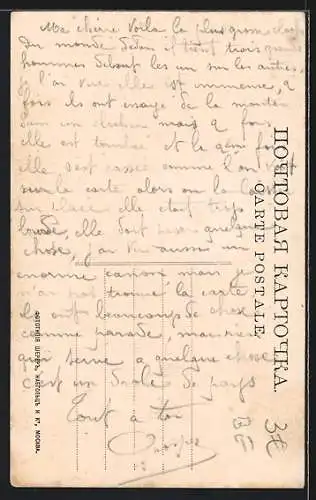 Ma chère Voila la plus grosse cloche
du monde dedans il tient trois grands
hommes debout les un sur les autres,
je l'ai vue elle est immense, 2
fois ils ont essayé de la monter
dans un clocher mais 2 fois
elle est tombée et la 2em fois
elle s'est cassée comme l'on voit
sur la carte alors on la
sur place elle etait trop
lourde, elle doit peser quelque
chose, j'ai vu aussi un
enorme canon mais je
n'ai pas trouvé la carte
ils ont beaucoup de chose
comme parade, mais rien
qui serve a quelque chose
c'est un drole de pays
Tout a toi
ПОЧТОВАЯ КАРТОЧКА.
CARTE POSTALE.
ФОТОТИПІЯ ШЕРЕРЪ, НАБГОЛЬЦЪ И Кº, МОСКВА.